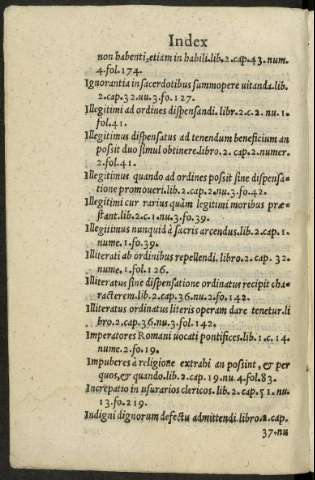 Index
non habenti, etiam in habili. lib. 2. cap. 43. num.
4. fol. 174.
Ignorantia in sacerdotibus summopere uitanda. lib.
2. cap. 32. nu. 3. fo. 127.
Illegitimi ad ordines dispensandi. libr. 2. c. 2. nu. 1.
fol. 41.
Illegitimus dispensatus ad tenendum beneficium an
possit duo simul obtinere. libro. 2. cap. 2. numer.
2. fol. 41.
Illegitimus quando ad ordines possit sine dispensa-
tione promoueri. lib. 2. cap. 2. nu. 3. fo. 42.
Illegitimi cur rarius quàm legitimi moribus præ-
stant. lib. 2. c. 1. nu. 3. fo. 39.
Illegitimus nunquid à sacris arcendus. lib. 2. cap. 1.
nume. 1. fo. 39.
Illiterati ab ordinibus repellendi. libro. 2. cap. 32.
nume. 1. fol. 126.
Illiteratus sine dispensatione ordinatus recipit cha-
racterem. lib. 2. cap. 36. nu. 2. fo. 142.
Illiteratus ordinatus literis operam dare tenetur. li
bro. 2. cap. 36. nu. 3. fol. 142.
Imperatores Romani uocati pontifices. lib. 1. c. 14.
nume. 2. fo. 19.
Impuberes à religione extrahi an possint, & per
quos, & quando. lib. 2. cap. 19. nu. 4. fol. 83.
Increpatio in usurarios clericos. lib. 2. cap. 51. nu.
13. fo. 219.
Indigni dignorum defectu admittendi. libro. 2. cap.
37. nu